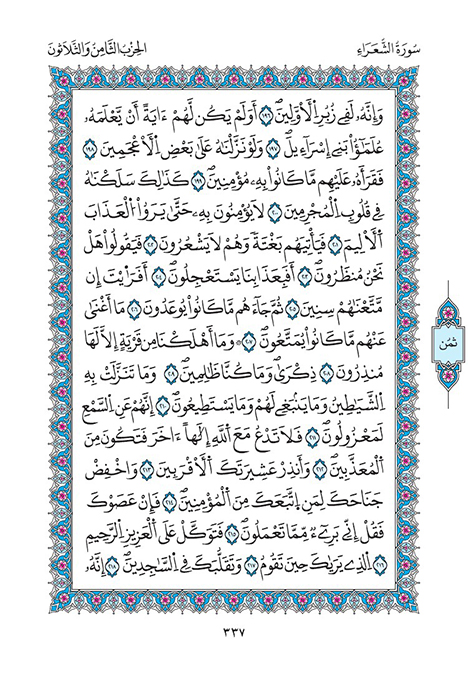 سُورَةُ الشُّعَرَاءِ
الحِزْبُ الثَّامِنُ وَالثَّلَاثُونَ
وَإِنَّهُۥ لَفِے زُبُرِ اِ۬لْأَوَّلِينَۖ ١٩٦ أَوَلَمْ يَكُن لَّهُمْ ءَايَةً أَنْ يَّعْلَمَهُۥ
عُلَمَٰٓؤُاْ بَنِےٓ إِسْرَآءِيلَۖ ١٩٧ وَلَوْ نَزَّلْنَٰهُ عَلَىٰ بَعْضِ اِ۬لْأَعْجَمِينَ ١٩٨
فَقَرَأَهُۥ عَلَيْهِم مَّا كَانُواْ بِهِۦ مُؤْمِنِينَۖ ١٩٩ كَذَٰلِكَ سَلَكْنَٰهُ
فِے قُلُوبِ اِ۬لْمُجْرِمِينَۖ ٢٠٠ لَا يُؤْمِنُونَ بِهِۦ حَتَّىٰ يَرَوُاْ اُ۬لْعَذَابَ
اَ۬لْأَلِيمَ ٢٠١ فَيَأْتِيَهُم بَغْتَةً وَهُمْ لَا يَشْعُرُونَۖ ٢٠٢ فَيَقُولُواْ هَلْ
نَحْنُ مُنظَرُونَۖ ٢٠٣ أَفَبِعَذَابِنَا يَسْتَعْجِلُونَۖ ٢٠٤ أَفَرَٰٓيْتَ إِن
مَّتَّعْنَٰهُمْ سِنِينَ ٢٠٥ ثُمَّ جَآءَهُم مَّا كَانُواْ يُوعَدُونَ ٢٠٦ مَا أَغْنَىٰ
عَنْهُم مَّا كَانُواْ يُمَتَّعُونَۖ ٢٠٧ وَمَا أَهْلَكْنَا مِن قَرْيَةٍ إِلَّا لَهَا
مُنذِرُونَ ٢٠٨ ذِكْرَىٰ وَمَا كُنَّا ظَٰلِمِينَۖ ٢٠٩ وَمَا تَنَزَّلَتْ بِهِ
اِ۬لشَّيَٰطِينُ وَمَا يَنۢبَغِے لَهُمْ وَمَا يَسْتَطِيعُونَۖ ٢١٠ إِنَّهُمْ عَنِ اِ۬لسَّمْعِ
لَمَعْزُولُونَۖ ٢١١ فَلَا تَدْعُ مَعَ اَ۬للَّهِ إِلَٰهاً ءَاخَرَ فَتَكُونَ مِنَ
اَ۬لْمُعَذَّبِينَۖ ٢١٢ وَأَنذِرْ عَشِيرَتَكَ اَ۬لْأَقْرَبِينَۖ ٢١٣ وَاخْفِضْ
جَنَاحَكَ لِمَنِ اِ۪تَّبَعَكَ مِنَ اَ۬لْمُؤْمِنِينَۖ ٢١٤ فَإِنْ عَصَوْكَ
فَقُلْ إِنِّے بَرِےٓءٌ مِّمَّا تَعْمَلُونَۖ ٢١٥ فَتَوَكَّلْ عَلَى اَ۬لْعَزِيزِ اِ۬لرَّحِيمِ
٢١٦ اِ۬لذِے يَرَىٰكَ حِينَ تَقُومُ ٢١٧ وَتَقَلُّبَكَ فِے اِ۬لسَّٰجِدِينَۖ ٢١٨ إِنَّهُۥ
ثُمُن
٣٣٧